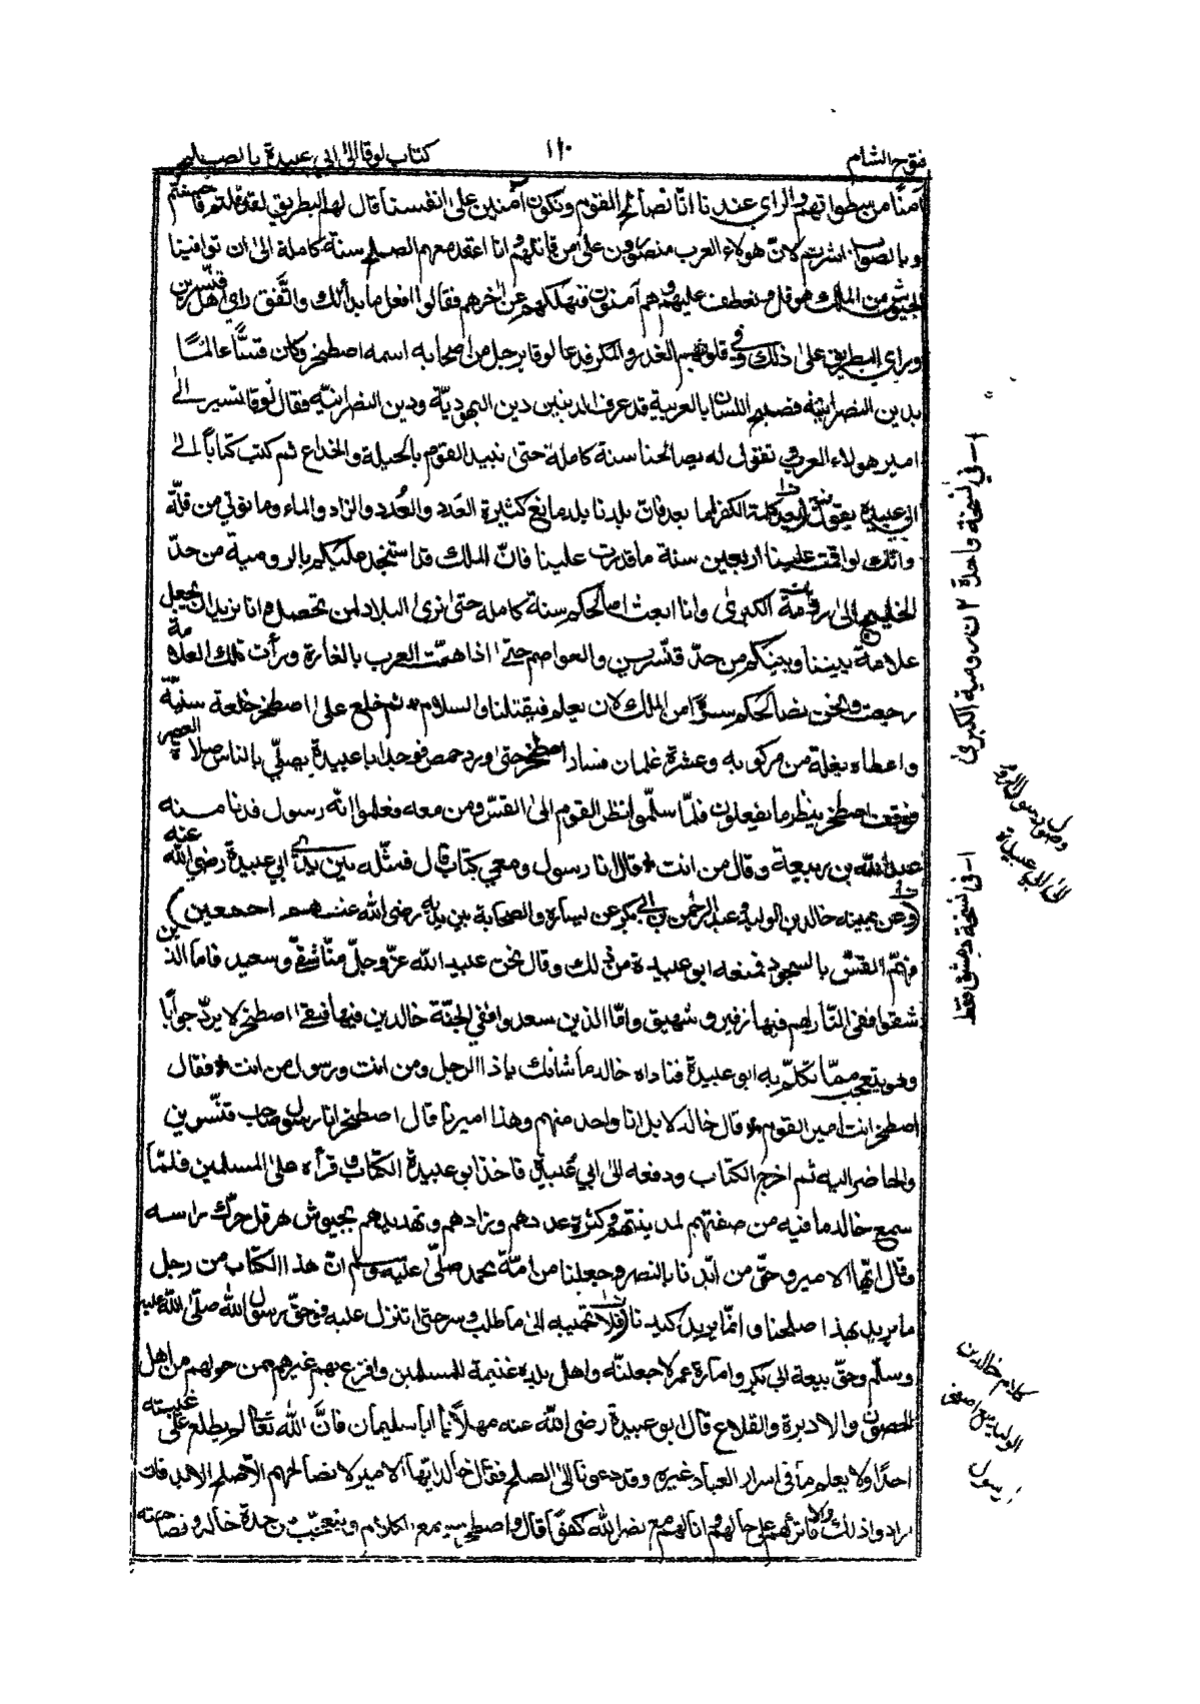 فتوح الشام
١١٠
كتاب لوقا الى ابي عبيدة بالصلح
آمنا من سطواتهم والراي عندنا انا نصالح القوم ونكون آمنين على انفسنا قال لهم البطريق لقد قلتم فاحسنتم
وبالصواب اشرتم لان هولاء العرب منصورون على من قاتلهم وانا اعقد معهم الصلح سنة كاملة الى ان توافينا
الجيوش من الملك هرقل ونعطف عليهم وهم آمنون فنهلكهم عن آخرهم فقالوا افعل ما بدا لك واتفق راي اهل قنسرين
وراي البطريق على ذلك وفي قلوبهم الغدر والمكر فدعا لوقا برجل من اصحابه اسمه اصطخر وكان قسا عالما
بدين النصرانية فصيح اللسان بالعربية قد عرف الدينين دين اليهودية ودين النصرانية فقال لوقا تسير الى
امير هولاء العرب وتقول له يصالحنا سنة كاملة حتى نبيد القوم بالحيلة والخداع ثم كتب كتابا الى
ابي عبيدة يقول بعد كلمة الكفر اما بعد فان بلدنا بلد مانع كثيرة العدد والعدد والزاد والماء وما نوتى من قلة
وانك لو اقمت علينا اربعين سنة ما قدرت علينا فان الملك قد استنجد عليكم بالرومية من حد
الخليج الى رومة الكبرى وانا ابعث اصالحكم سنة كاملة حتى نرى البلاد لمن تحصل وانا نريد ان نجعل
علامة بيننا وبينكم من حد قنسرين والعواصم حتى اذا همت العرب بالغارة ورأت تلك العلامة
رجعت ونحن نصالحكم سرا من الملك لان يعلم فيقتلنا والسلام * ثم خلع على اصطخر خلعة سنية
واعطاه بغلة من مركوبه وعشرة غلمان فسار اصطخر حتى ورد حمص فوجد ابا عبيدة يصلي بالناس صلاة العصر
فوقف اصطخر ينظر ما يفعلون فلما سلموا نظر القوم الى القس ومن معه فعلموا انه رسول فدنا منه
عبد الله بن ربيعة وقال من انت * قال انا رسول ومعي كتاب قال فمثله بين يدي ابي عبيدة رضي الله عنه
(وعن يمينه خالد بن الوليد وعبد الرحمن بن ابي بكر عن يساره والصحابة بين يديه رضي الله عنهم اجمعين)
فهم القس بالسجود فمنعه ابو عبيدة من ذلك وقال نحن عبيد الله عز وجل منا شقي وسعيد فاما الذين
شقوا ففى النار لهم فيها زفير وشهيق واما الذين سعدوا ففي الجنة خالدين فيها فبقي اصطخر لا يرد جوابا
وهو يتعجب مما تكلم به ابو عبيدة فناداه خالد ما شانك ياذا الرجل ومن انت ورسول من انت * فقال
اصطخر انت امير القوم * قال خالد لا بل انا واحد منهم وهذا اميرنا قال اصطخر انا رسول صاحب قنسرين
والحاضر اليه ثم اخرج الكتاب ودفعه الى ابي عبيدة فاخذ ابو عبيدة الكتاب وقرأه على المسلمين فلما
سمع خالد ما فيه من صفتهم لمدينتهم وكثرة عددهم وزادهم وتهديدهم بجيوش هرقل حرك راسه
وقال ايها الامير وحق من ايدنا بالنصر وجعلنا من امة محمد صلى عليه وسلم ان هذا الكتاب من رجل
ما يريد بهذا صلحنا وانما يريد كيدنا (فلا تجيبه الى ما طلب وسر حتى تنزل عليه فوحق رسول الله صلى الله عليه
وسلم وحق بيعة ابي بكر وامارة عمر لا جعلنه واهل بلده غنيمة للمسلمين وافزع بهم غيرهم ممن حولهم من اهل
الحصون والاديرة والقلاع قال ابو عبيدة رضي الله عنه مهلا يا ابا سليمان فان الله تعالى لم يطلع على غيبته
احدا ولا يعلم ما في اسرار العباد غيره وقد دعونا الى الصلح فقال خالد ايها الامير لا نصالحهم الا صلح الابد فان
ارادوا ذلك والا فاتركهم على حالهم وانا لهم مع نصر الله كفؤا قال واصطخر يسمع الكلام ويتعجب من حدة خالد وفصاحته
١ــ في نسخة واحدة ٢ ن رومية الكبرى
وصول رسول الروم
الى ابي عبيدة
١ــ في نسخة دمشق فقط
كلام خالد بن
الوليد مع اصطخر
رسول